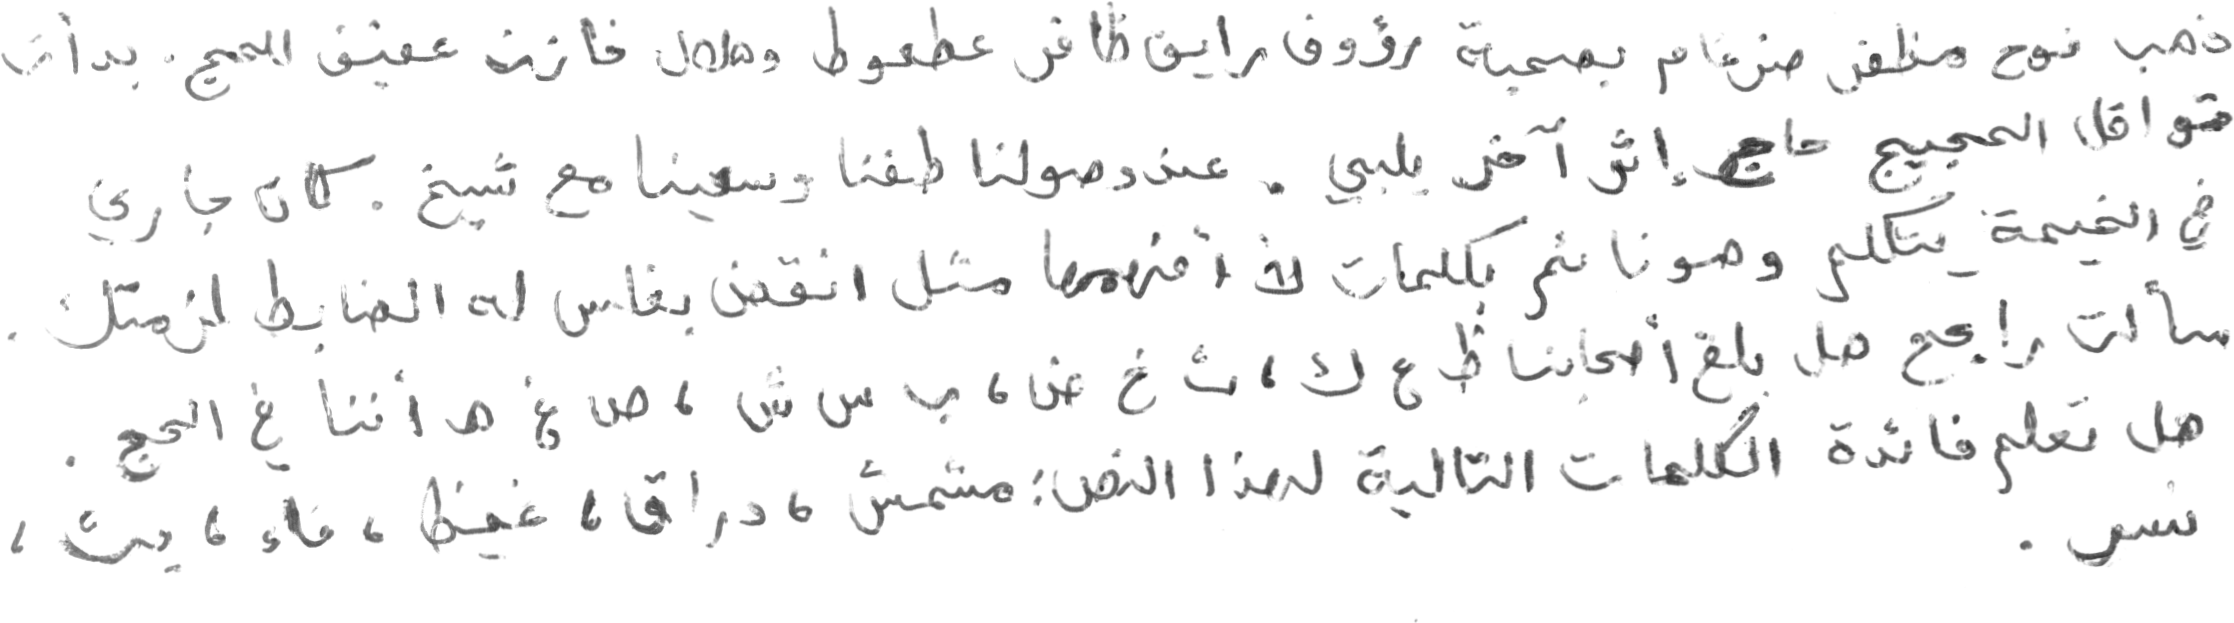 ذهب نوح مظفر ضرغام بصحبة رؤوف رايق ظافر عطعوط وهلال خازن عفيف للحج. بدأت
قوافل الحجيج حاج إثر آخر يلبي. عند وصولنا طفنا وسعينا مع شيخ. كان جاري
في الخيمة يتكلم وهو نائم بكلمات لا أفهمها مثل انقض بغلس له الضابط لزمتك.
سألت راجح هل بلغ أصحابنا ظ ع ك، ث خ ض، ب س ش، ص غ هـ أننا في الحج.
هل تعلم فائدة الكلمات التالية لهذا النص: مشمش، دراق، غفيظ، فاء، يبث،
نسر.